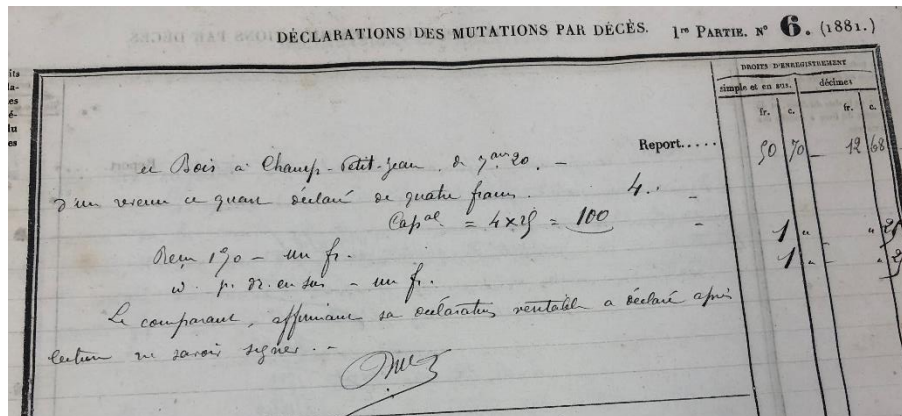 DÉCLARATIONS DES MUTATIONS PAR DÉCÈS. 1re PARTIE. N° 6. (1881.)
DROITS D'ENREGISTREMENT
simple et en sus. décimes
fr. c. fr. c.
Report..... 50 70 12 68
et Bois à Champ-Petit-Jean, de 7 ares 20. –
d'un revenu ce quart déclaré de quatre francs. 4. "
Capal = 4 x 25 = 100
Reçu 1 % – un fr. 1 " " 25
id. p. dt. en sus – un fr. 1 " " 25
Le comparant, affirmant sa déclaration véritable a déclaré après
lecture ne savoir signer. –